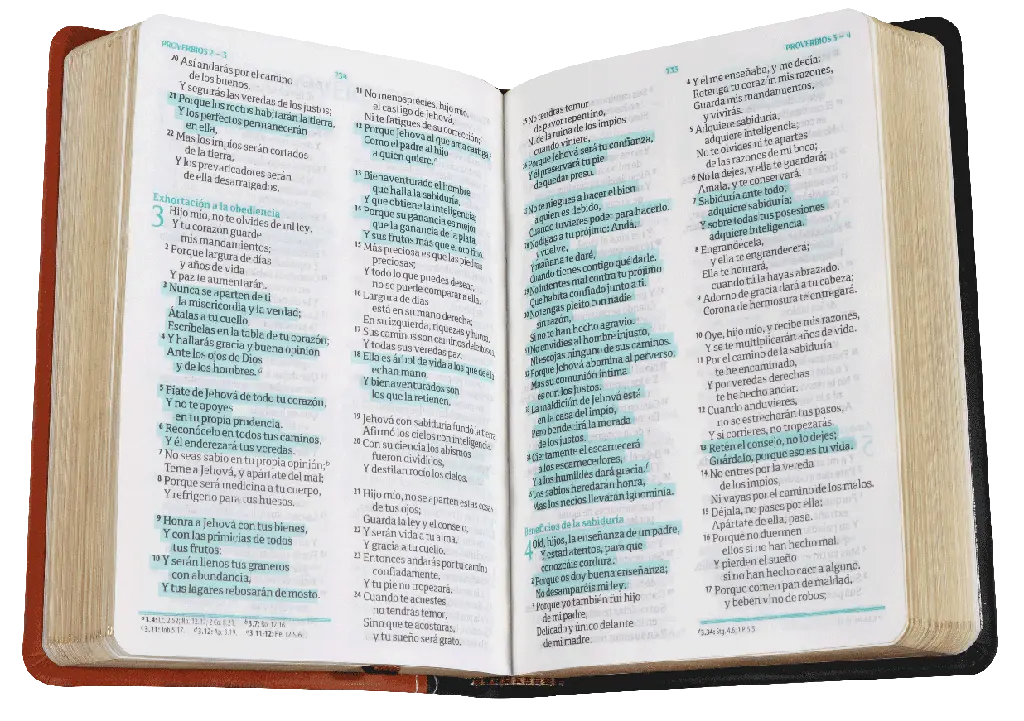 PROVERBIOS 2 – 3
754
20 Así andarás por el camino
de los buenos,
Y seguirás las veredas de los justos;
21 Porque los rectos habitarán la tierra,
Y los perfectos permanecerán
en ella,
22 Mas los impíos serán cortados
de la tierra,
Y los prevaricadores serán
de ella desarraigados.
Exhortación a la obediencia
3 Hijo mío, no te olvides de mi ley,
Y tu corazón guarde
mis mandamientos;
2 Porque largura de días
y años de vida
Y paz te aumentarán.
3 Nunca se aparten de ti
la misericordia y la verdad;
Átalas a tu cuello,
Escríbelas en la tabla de tu corazón;
4 Y hallarás gracia y buena opinión
Ante los ojos de Dios
y de los hombres.
5 Fíate de Jehová de todo tu corazón,
Y no te apoyes
en tu propia prudencia.
6 Reconócelo en todos tus caminos,
Y él enderezará tus veredas.
7 No seas sabio en tu propia opinión;
Teme a Jehová, y apártate del mal;
8 Porque será medicina a tu cuerpo,
Y refrigerio para tus huesos.
9 Honra a Jehová con tus bienes,
Y con las primicias de todos
tus frutos;
10 Y serán llenos tus graneros
con abundancia,
Y tus lagares rebosarán de mosto.
11 No menosprecies, hijo mío,
el castigo de Jehová,
Ni te fatigues de su corrección;
12 Porque Jehová al que ama castiga,
Como el padre al hijo
a quien quiere.
13 Bienaventurado el hombre
que halla la sabiduría,
Y que obtiene la inteligencia;
14 Porque su ganancia es mejor
que la ganancia de la plata,
Y sus frutos más que el oro fino.
15 Más preciosa es que las piedras
preciosas;
Y todo lo que puedes desear,
no se puede comparar a ella.
16 Largura de días
está en su mano derecha;
En su izquierda, riquezas y honra.
17 Sus caminos son caminos deleitosos,
Y todas sus veredas paz.
18 Ella es árbol de vida a los que de ella
echan mano,
Y bienaventurados son
los que la retienen.
19 Jehová con sabiduría fundó la tierra;
Afirmó los cielos con inteligencia.
20 Con su ciencia los abismos
fueron divididos,
Y destilan rocío los cielos.
21 Hijo mío, no se aparten estas cosas
de tus ojos;
Guarda la ley y el consejo,
22 Y serán vida a tu alma,
Y gracia a tu cuello.
23 Entonces andarás por tu camino
confiadamente,
Y tu pie no tropezará.
24 Cuando te acuestes,
no tendrás temor,
Sino que te acostarás,
y tu sueño será grato.
PROVERBIOS 3 – 4
755
25 No tendrás temor
de pavor repentino,
Ni de la ruina de los impíos
cuando viniere,
26 Porque Jehová será tu confianza,
Y él preservará tu pie
de quedar preso.
27 No te niegues a hacer el bien
a quien es debido,
Cuando tuvieres poder para hacerlo.
28 No digas a tu prójimo: Anda,
y vuelve,
Y mañana te daré,
Cuando tienes contigo qué darle.
29 No intentes mal contra tu prójimo
Que habita confiado junto a ti.
30 No tengas pleito con nadie
sin razón,
Si no te han hecho agravio.
31 No envidies al hombre injusto,
Ni escojas ninguno de sus caminos.
32 Porque Jehová abomina al perverso;
Mas su comunión íntima
es con los justos.
33 La maldición de Jehová está
en la casa del impío,
Pero bendecirá la morada
de los justos.
34 Ciertamente él escarnecerá
a los escarnecedores,
Y a los humildes dará gracia.
35 Los sabios heredarán honra,
Mas los necios llevarán ignominia.
Beneficios de la sabiduría
4 Oíd, hijos, la enseñanza de un padre,
Y estad atentos, para que
conozcáis cordura.
2 Porque os doy buena enseñanza;
No desamparéis mi ley.
3 Porque yo también fui hijo
de mi padre,
Delicado y único delante
de mi madre.
4 Y él me enseñaba, y me decía:
Retenga tu corazón mis razones,
Guarda mis mandamientos,
y vivirás.
5 Adquiere sabiduría,
adquiere inteligencia;
No te olvides ni te apartes
de las razones de mi boca;
6 No la dejes, y ella te guardará;
Amala, y te conservará.
7 Sabiduría ante todo;
adquiere sabiduría;
Y sobre todas tus posesiones
adquiere inteligencia.
8 Engrandécela,
y ella te engrandecerá;
Ella te honrará,
cuando tú la hayas abrazado.
9 Adorno de gracia dará a tu cabeza;
Corona de hermosura te entregará.
10 Oye, hijo mío, y recibe mis razones,
Y se te multiplicarán años de vida.
11 Por el camino de la sabiduría
te he encaminado,
Y por veredas derechas
te he hecho andar.
12 Cuando anduvieres,
no se estrecharán tus pasos,
Y si corrieres, no tropezarás.
13 Retén el consejo, no lo dejes;
Guárdalo, porque eso es tu vida.
14 No entres por la vereda
de los impíos,
Ni vayas por el camino de los malos.
15 Déjala, no pases por ella;
Apártate de ella, pasa.
16 Porque no duermen
ellos si no han hecho mal,
Y pierden el sueño
si no han hecho caer a alguno.
17 Porque comen pan de maldad,
y beben vino de robos;